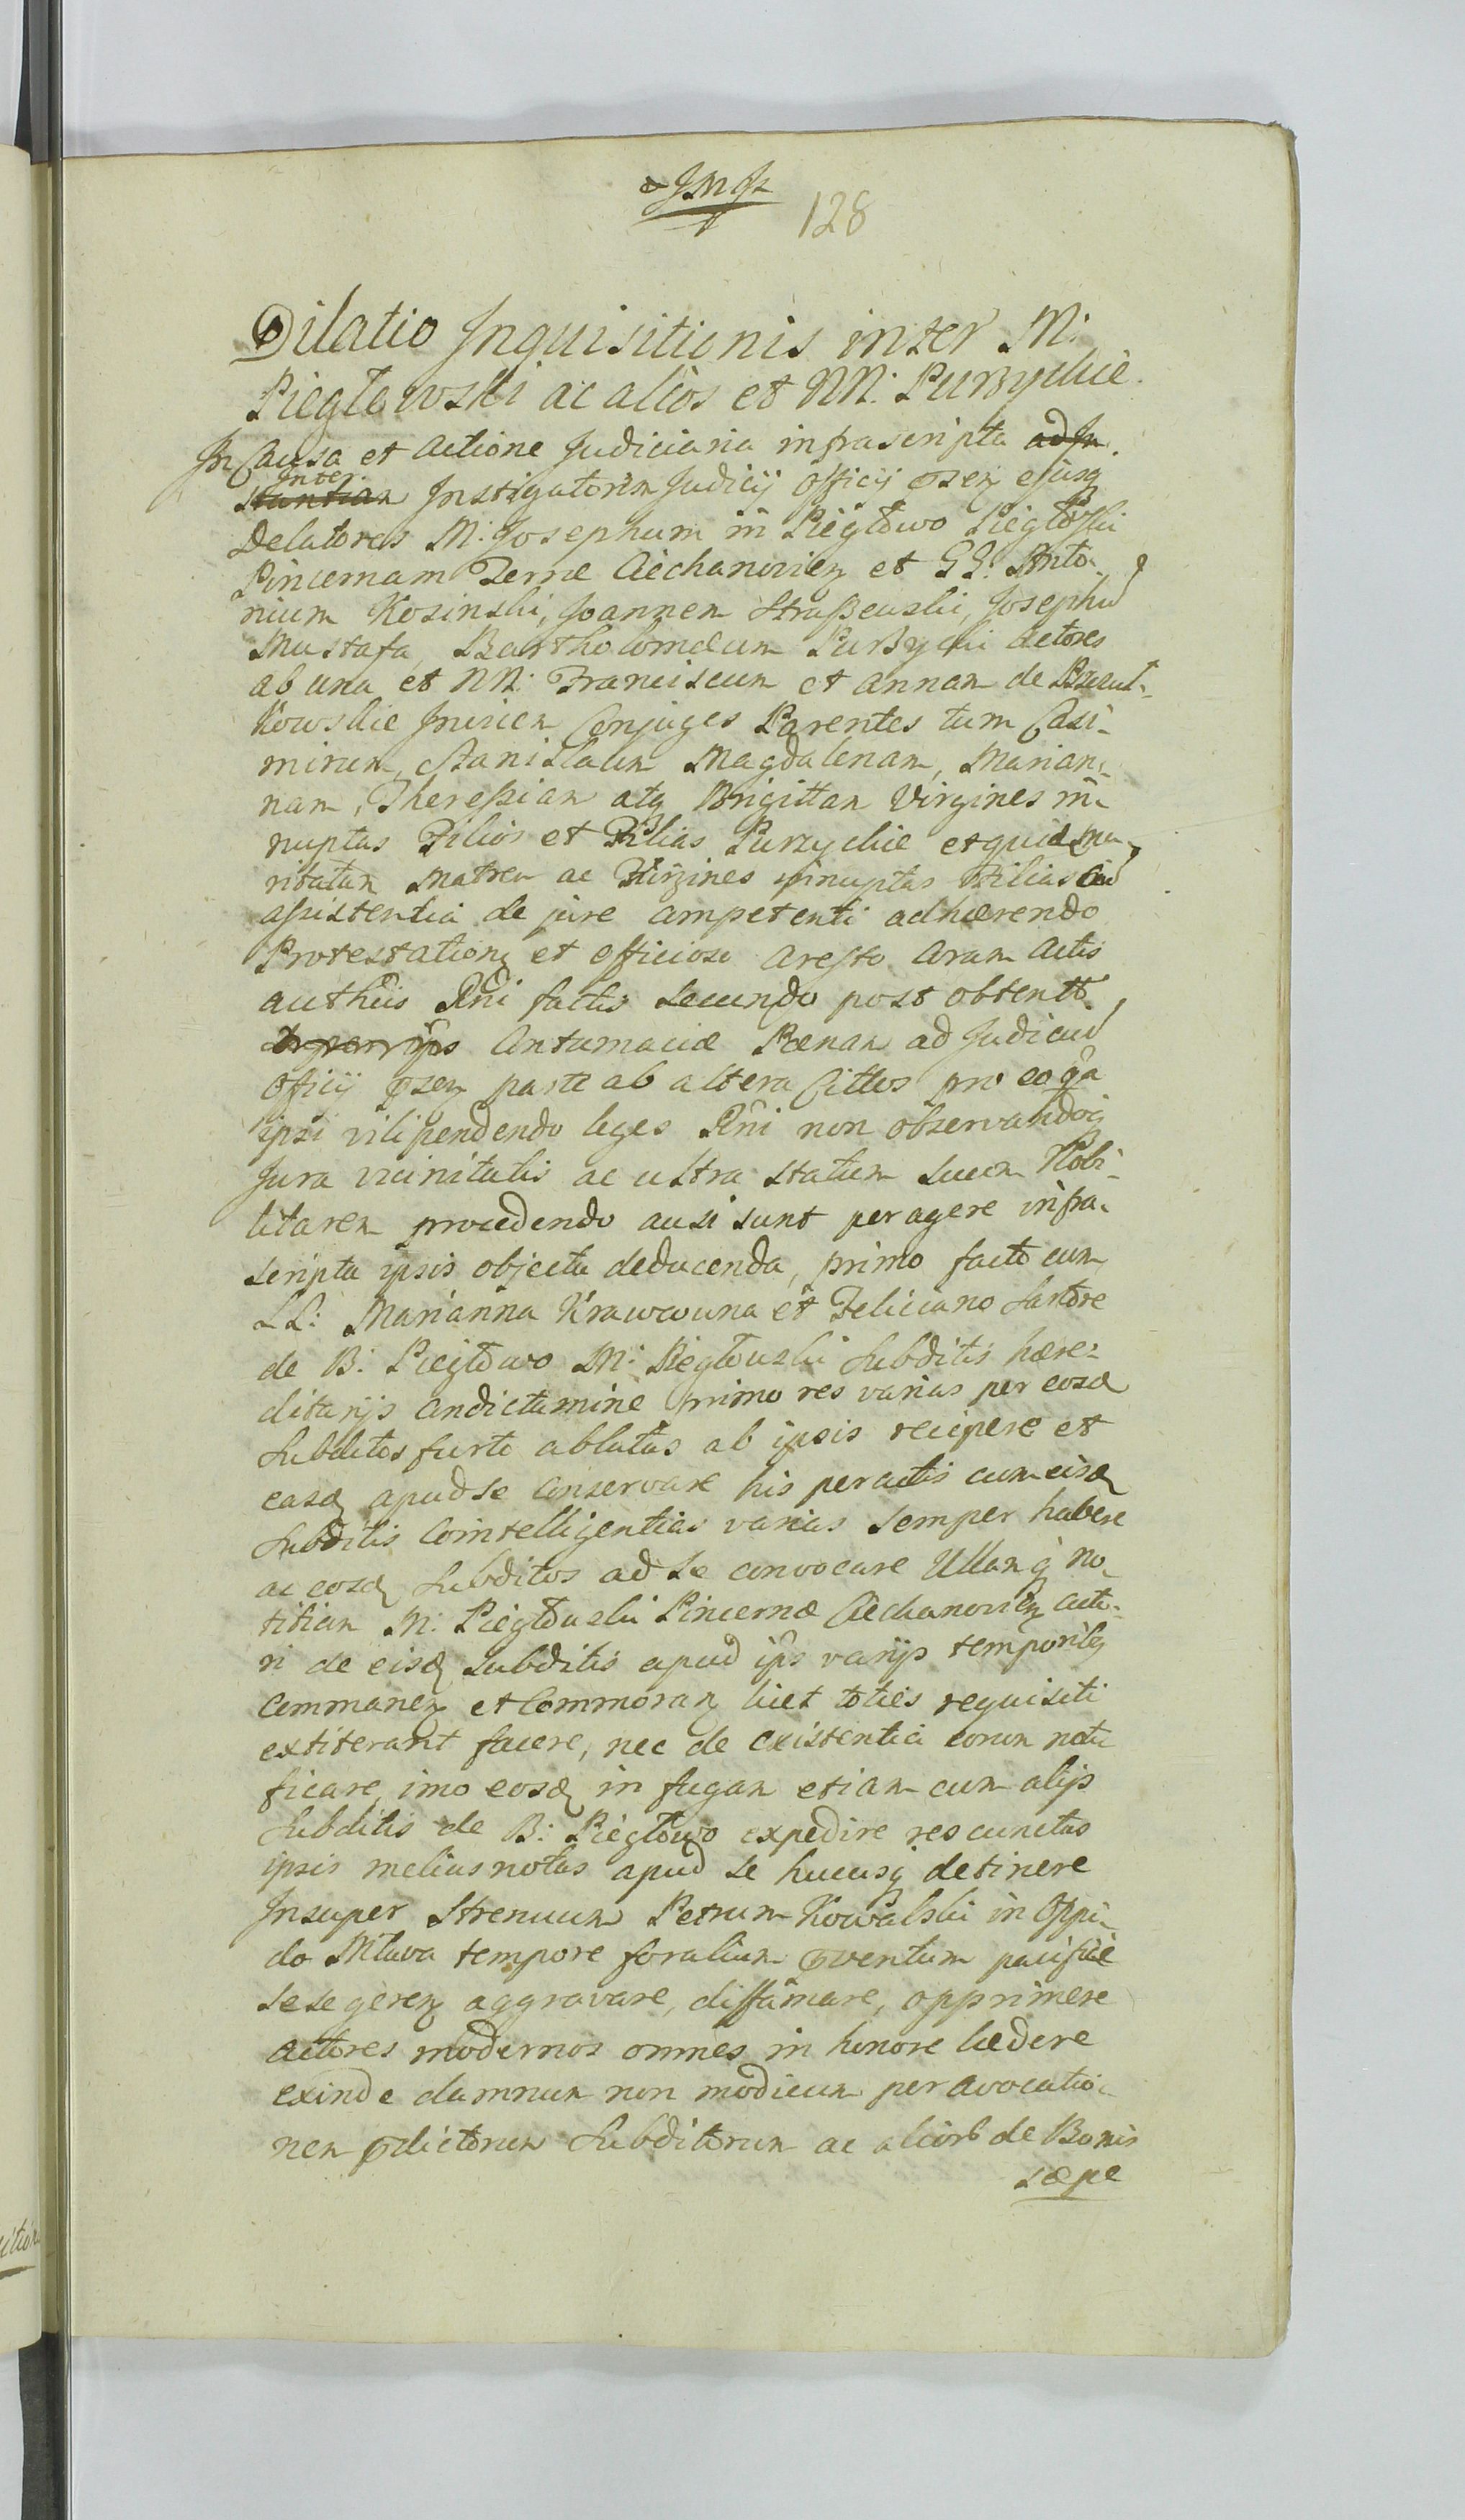 128
Dilatio Inquisitionis inter M:
Piegłowski ac alios et NN: Purzyckie.
In Causa et Actione Judiciaria infrascripta ad In
stantiam Inter Instigatorem Judicij Officij psen ejusq
Delatores M: Josephum in Piegłowo Piegłowski
Pincernam Terrae Ciechanovien et GG: Anto-
nium Kosinski, Joannem Straszewski, Josephu
Mustafa, Bartholomaeum Purzycki Actores
ab una et NN: Franciscum et Annam de
kowskie Invicem Conjuges Parentes tum Casi-
mirum, Stanislaum Magdalenam, Marian-
nam, Theressiam atq Brigittam Virgines in-
nuptas Filios et Filias Purzyckie et quidem ma-
ritatam Matrem ac Virgines innuptas Filias cu
assistentia de jure competenti adhaerendo
Protestation et officioso Aresto coram Actis
authcis Rni factis secundo post obtent
ipos Contumaciae Paenam ad Judiciu
Officij psen parte ab altera Cittos pro eo qa
ipsi vilipendendo leges Rni non observandoq
Jura vicinitatis ac ultra statum suum Nobi-
litarem procedendo ausi sunt peragere infra-
scripta ipsis objecta deducenda, primo facto cum
LL: Marianna Krawcowna et Feliciano Sartore
de B: Piegłowo M: Piegłowski Subditis haere-
ditarijs Condictamine primo res varias per eosd
Subditos furto ablatas ab ipsis recipere et
easd apud se Conservare his peractis cum eisd
Subditis Cointelligentias varias semper habere
ac eosd Subditos ad se convocare Ullamq no-
titiam M: Piegłowski Pincernae Ciechanovien acto-
ri de eisd Subditis apud ipos varijs temporibq
Commanen et Commoran licet toties requisiti
extiterant facere, nec de existentia eorum noti-
ficare, imo eosd in fugam etiam cum alijs
Subditis de B: Piegłowo expedire res cunctas
ipsis melius notas apud se hucusq detinere
Insuper Strenuum Petrum Kowalski in Oppi-
do Mława tempore foralium Conventum pacifice
sese geren aggravare, diffamare, opprimere
actores modernos omnes in honore laedere
exinde damnum non modicum per avocatio-
nem pdictorum Subditorum ac aliorb de Bonis
saepe